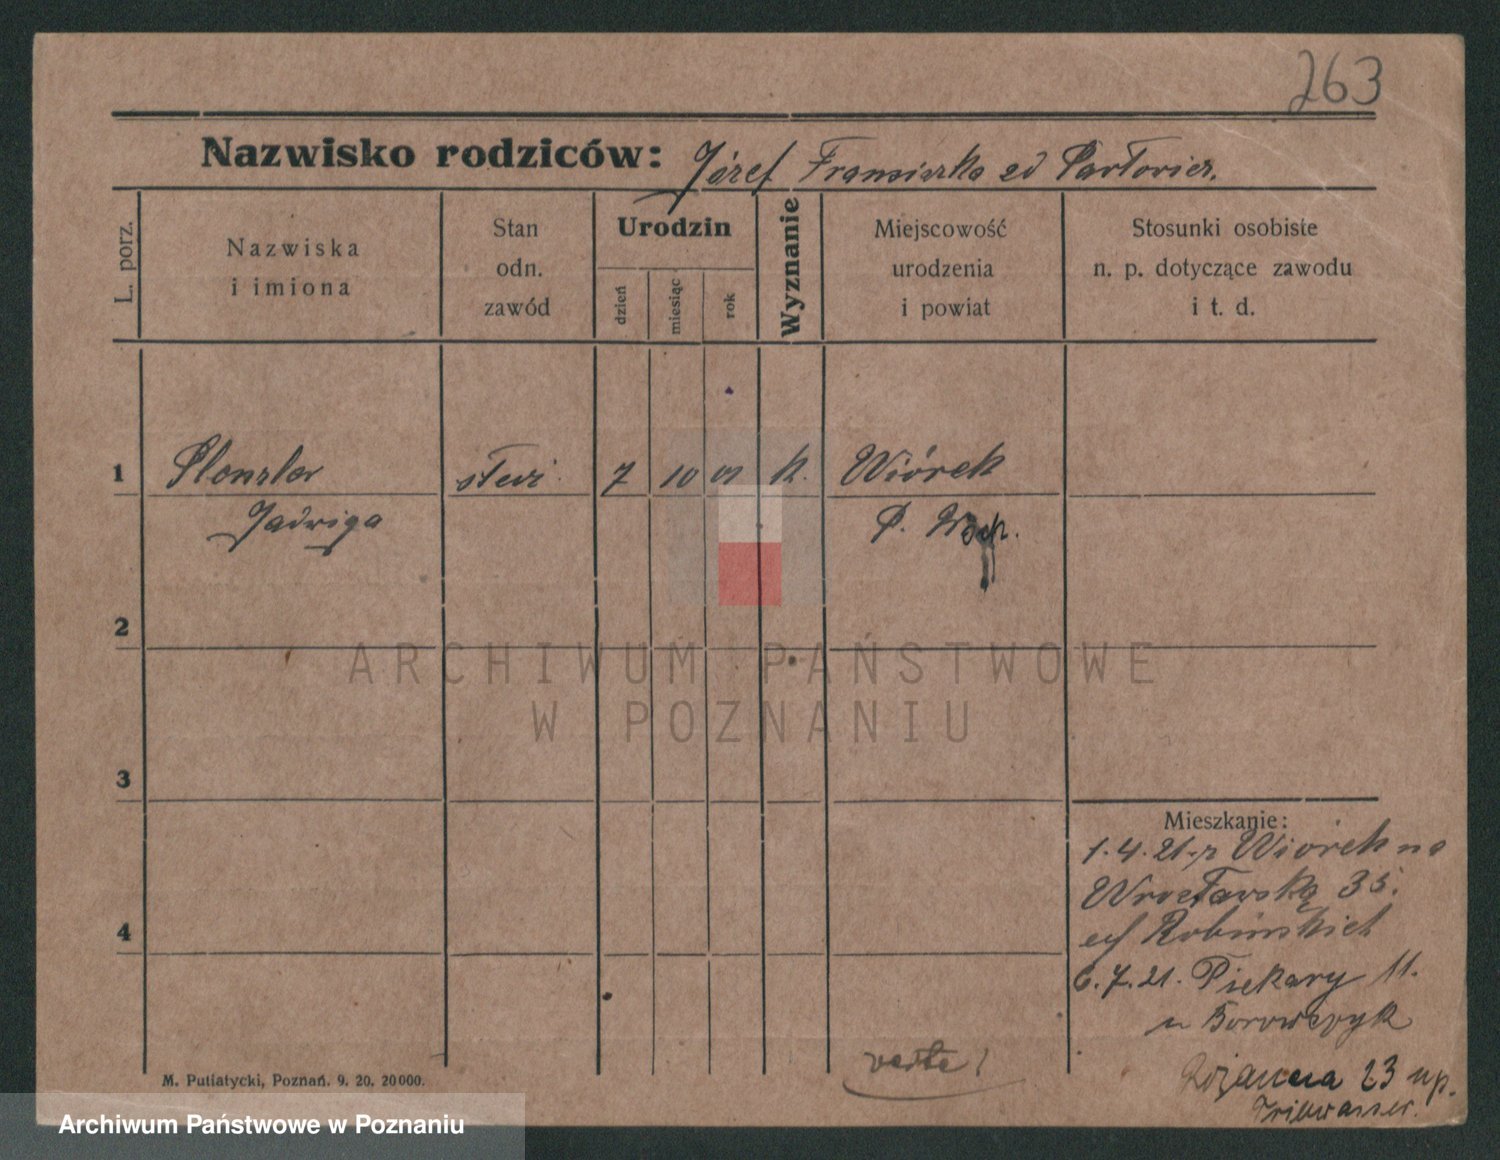 263
Nazwisko rodziców: Józef Franciszka zd
L. porz.
Nazwiska
i imiona
Stan
odn.
zawód
Urodzin
dzień
miesiąc
rok
Wyznanie
Miejscowość
urodzenia
i powiat
Stosunki osobiste
n. p. dotyczące zawodu
i t. d.
1 7 10 01 k. Wiórek
Jadwiga P.
2
ARCHIWUM PAŃSTWOWE
W POZNANIU
3
Mieszkanie:
1.4.21. z Wiórek na
Wrocławską 35.
4
6.7.21. Piekary 11.
u Borowczyk
verte!
23 u p.
M. Putiatycki, Poznań. 9. 20. 20000.
Archiwum Państwowe w Poznaniu